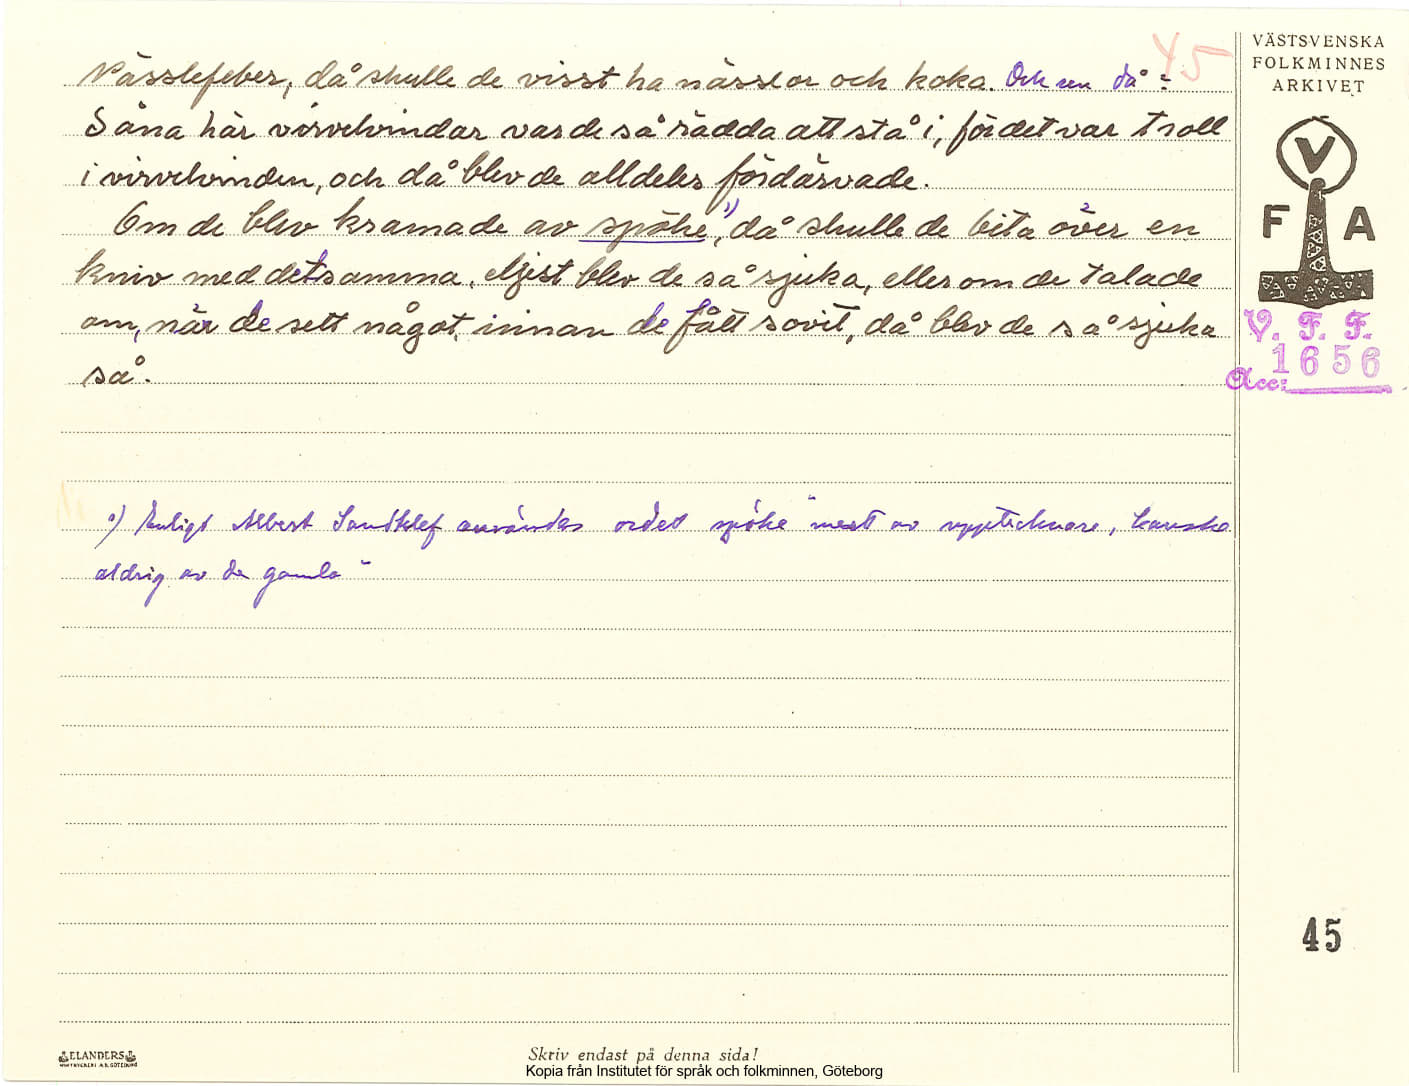 45
VÄSTSVENSKA
FOLKMINNES
ARKIVET
Nässlefeber, då skulle de visst ha nässlor och koka. Och sen då?
Såna här virvelvindar var de så rädda att stå i, för det var troll
i virvelvinden, och då blev de alldeles fördärvade.
Om de blev kramade av spöke,¹⁾ då skulle de bita över en
kniv med detsamma, eljest blev de så sjuka, eller om de talade
om, när de sett något, innan de fått sovit, då blev de så sjuka
så.
V
F A
V. F. F.
Acc: 1656
¹⁾ Enligt Albert Sandklef användes ordet spöke "mest av upptecknare, kanske
aldrig av de gamla"
45
ELANDERS
Skriv endast på denna sida!
Kopia från Institutet för språk och folkminnen, Göteborg